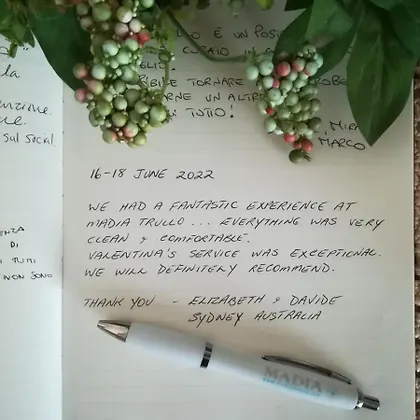 LO È UN POSTO
CURATO IN
GLIO!
RIBILE TORNARE
RNE UN ALTRO
TUTTO!
MARCO
la
enzione
sul social
ENZA
DI
TUTI
NON SONO
16-18 JUNE 2022
WE HAD A FANTASTIC EXPERIENCE AT
MADIA TRULLO ... EVERYTHING WAS VERY
CLEAN & COMFORTABLE.
VALENTINA'S SERVICE WAS EXCEPTIONAL.
WE WILL DEFINITELY RECOMMEND.
THANK YOU - ELIZABETH & DAVIDE
SYDNEY AUSTRALIA
MADIA